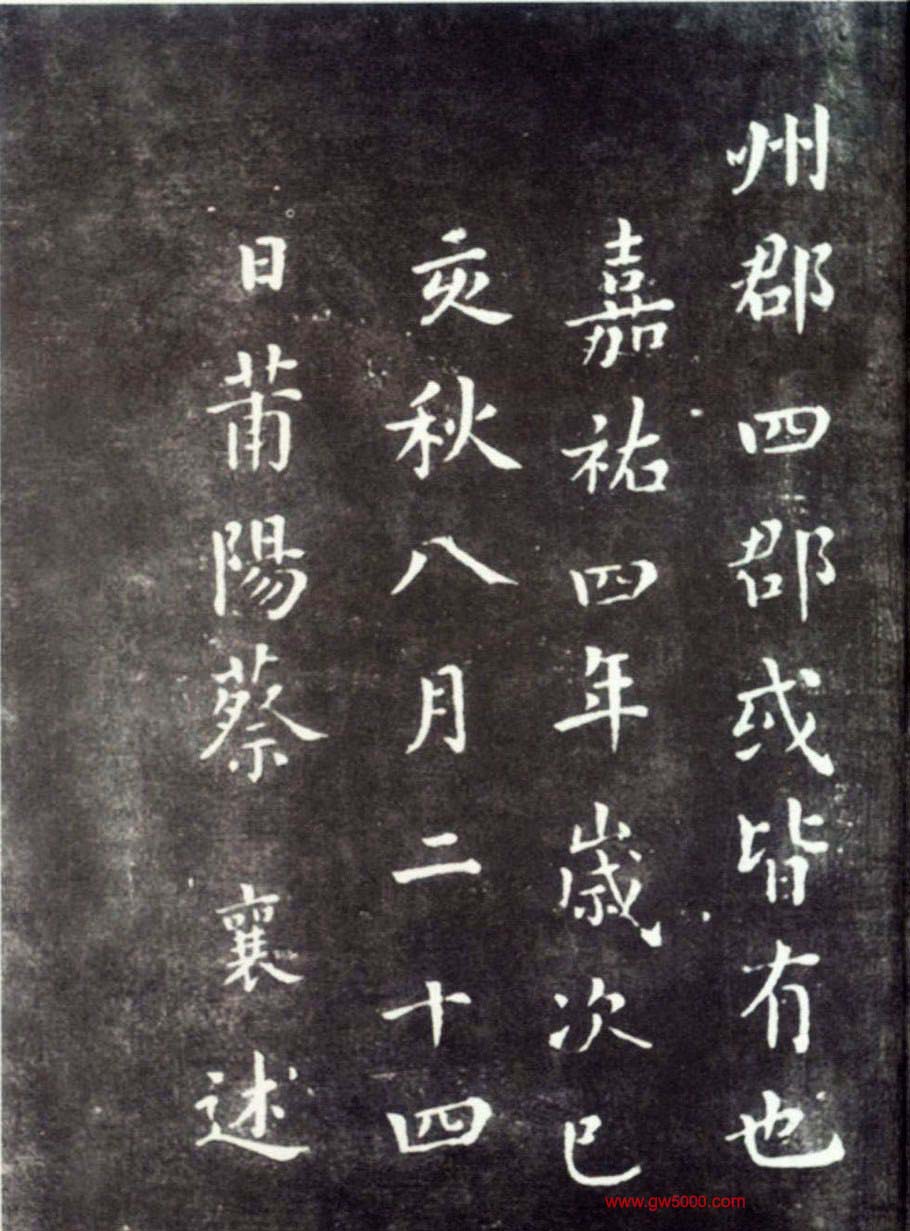 州郡四郡或皆有也
嘉祐四年歲次己
亥秋八月二十四
日莆陽蔡襄述
www.gw5000.com